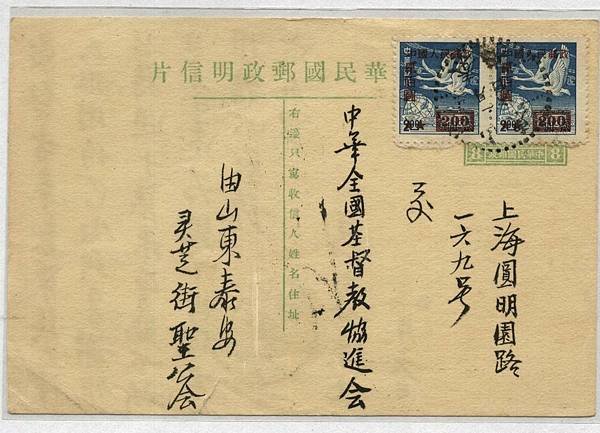 華民國郵政明信片
右邊只寫收信人姓名住址
上海圓明園路
一六九号
交
中華全國基督教協進会
由山東泰安
灵芝街聖公会
200
200
8
8